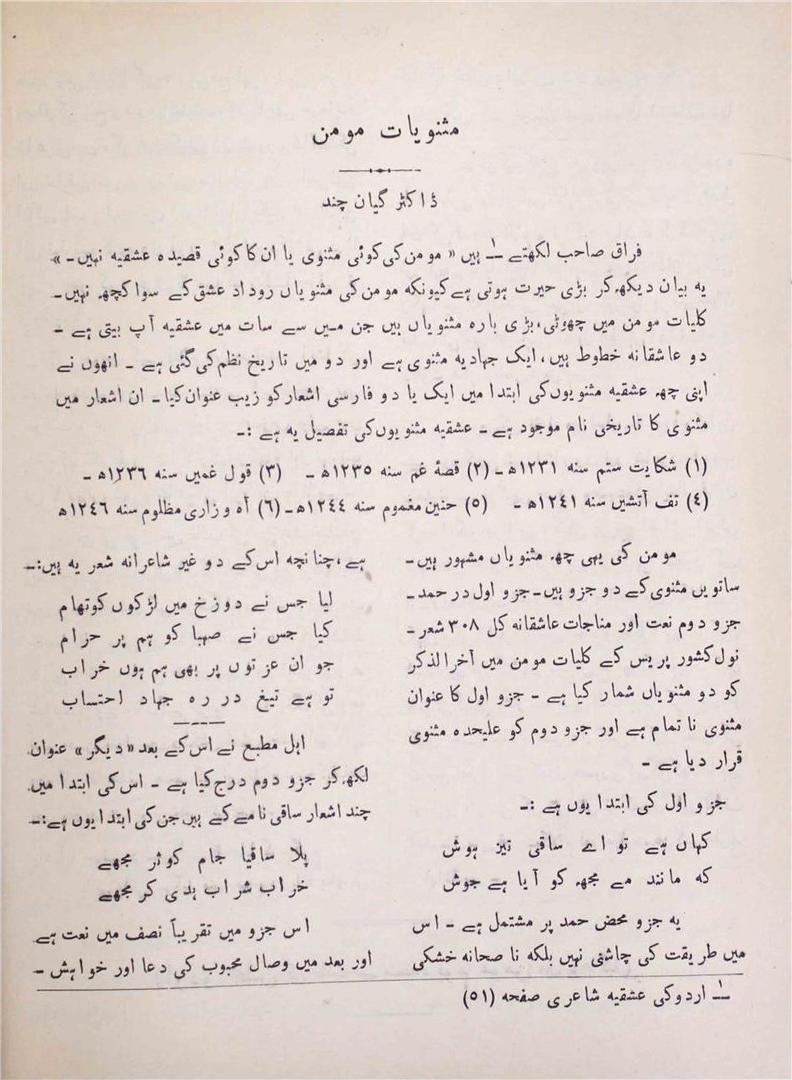 مثنویات مومن
ڈاکٹر گیان چند
فراق صاحب لکھتے ؂۱ ہیں « مومن کی کوئی مثنوی یا ان کا کوئی قصیدہ عشقیہ نہیں۔ »
یہ بیان دیکھ کر بڑی حیرت ہوتی ہے کیونکہ مومن کی مثنویاں روداد عشق کے سوا کچھ نہیں۔
کلیات مومن میں چھوٹی، بڑی بارہ مثنویاں ہیں جن میں سے سات میں عشقیہ آپ بیتی ہے ۔
دو عاشقانہ خطوط ہیں، ایک جہادیہ مثنوی ہے اور دو میں تاریخ نظم کی گئی ہے ۔ انھوں نے
اپنی چھ عشقیہ مثنویوں کی ابتدا میں ایک یا دو فارسی اشعار کو زیب عنوان کیا ۔ ان اشعار میں
مثنوی کا تاریخی نام موجود ہے ۔ عشقیہ مثنویوں کی تفصیل یہ ہے :۔
(۱) شکایت ستم سنہ ۱۲۳۱ھ ۔ (۲) قصۂ غم سنہ ۱۲۳۵ھ ۔ (۳) قول غمیں سنہ ۱۲۳۶ھ ۔
(۴) تف آتشیں سنہ ۱۲۴۱ھ ۔ (۵) حنین مغموم سنہ ۱۲۴۴ھ ۔ (۶) آہ و زاری مظلوم سنہ ۱۲۴۶ھ
مومن کی یہی چھ مثنویاں مشہور ہیں ۔
ساتویں مثنوی کے دو جزو ہیں ۔ جزو اول در حمد ۔
جزو دوم نعت اور مناجات عاشقانہ کل ۳۰۸ شعر ۔
نول کشور پریس کے کلیات مومن میں آخرالذکر
کو دو مثنویاں شمار کیا ہے ۔ جزو اول کا عنوان
مثنوی نا تمام ہے اور جزو دوم کو علیحدہ مثنوی
قرار دیا ہے ۔
جزو اول کی ابتدا یوں ہے :۔
کہاں ہے تو اے ساقی تیز ہوش
کہ مانند مے مجھ کو آیا ہے جوش
یہ جزو محض حمد پر مشتمل ہے ۔ اس
میں طریقت کی چاشنی نہیں بلکہ ناصحانہ خشکی
ہے، چنانچہ اس کے دو غیر شاعرانہ شعر یہ ہیں :۔
لیا جس نے دوزخ میں لڑکوں کو تھام
کیا جس نے صہبا کو ہم پر حرام
جو ان عزتوں پر بھی ہم ہوں خراب
تو ہے تیغ در رہ جہاد احتساب
اہل مطبع نے اس کے بعد « دیگر » عنوان
لکھ کر جزو دوم درج کیا ہے ۔ اس کی ابتدا میں
چند اشعار ساقی نامے کے ہیں جن کی ابتدا یوں ہے :۔
پلا ساقیا جام کوثر مجھے
خراب شراب ہدی کر مجھے
اس جزو میں تقریباً نصف میں نعت ہے
اور بعد میں وصال محبوب کی دعا اور خواہش ۔
؂۱ اردو کی عشقیہ شاعری صفحہ (۵۱)